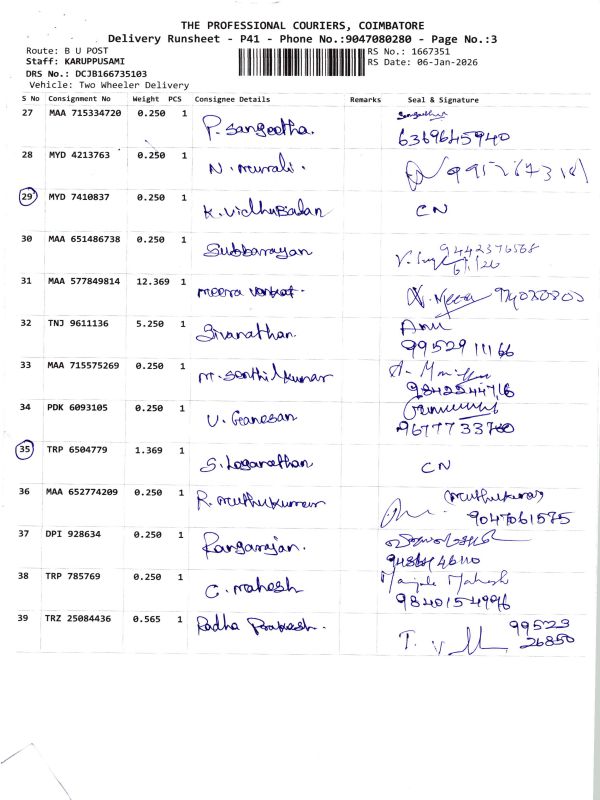 THE PROFESSIONAL COURIERS, COIMBATORE
Delivery Runsheet - P41 - Phone No.:9047080280 - Page No.:3
Route: B U POST
RS No.: 1667351
Staff: KARUPPUSAMI
RS Date: 06-Jan-2026
DRS No.: DCJB166735103
Vehicle: Two Wheeler Delivery
S No Consignment No Weight PCS Consignee Details Remarks Seal & Signature
27 MAA 715334720 0.250 1 P. Sangeetha.
6369645940
28 MYD 4213763 0.250 1 N. Murali.
29 MYD 7410837 0.250 1 K. Vidhubalan CN
30 MAA 651486738 0.250 1 Subbarayan 9442376568
6/1/26
31 MAA 577849814 12.369 1 Meera Venkat. N. Meera
32 TNJ 9611136 5.250 1 Sivanathan. Anu
9952911166
33 MAA 715575269 0.250 1 M. Senthilkumar
9842544716
34 PDK 6093105 0.250 1 V. Ganesan
9677733700
35 TRP 6504779 1.369 1 S. Loganathan CN
36 MAA 652774209 0.250 1 R. Muthukumar Muthukumar
9047061575
37 DPI 928634 0.250 1 Rangarajan.
38 TRP 785769 0.250 1 C. Mahesh Manjula Mahesh
39 TRZ 25084436 0.565 1 Radha Prakash. 99523
26850